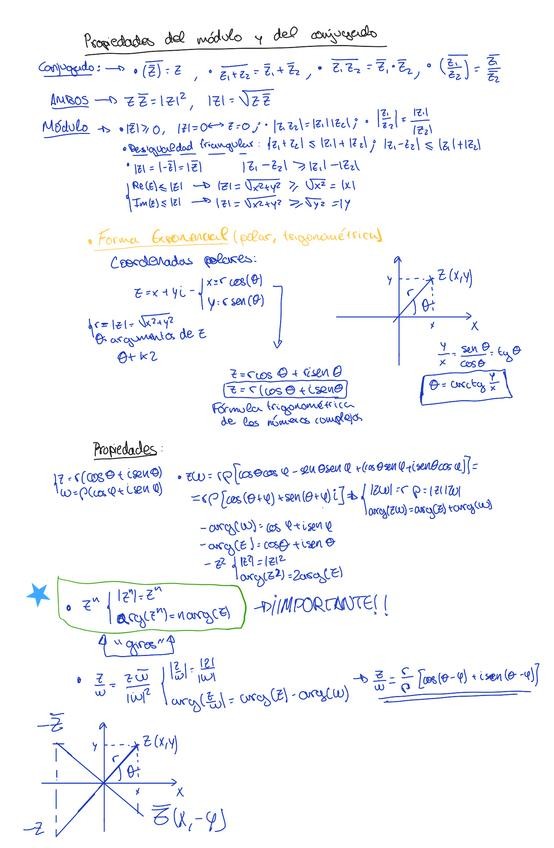 Propiedades del módulo y del conjugado
Conjugado: → • (z̿) = z , • \overline{z₁+z₂} = z̄₁ + z̄₂ , • \overline{z₁z₂} = z̄₁·z̄₂ , • \overline{(z₁/z₂)} = z̄₁/z̄₂
AMBOS → z z̄ = |z|² , |z| = √(z z̄)
Módulo → • |z| ⩾ 0, |z|=0 ↔ z=0 ; • |z₁z₂| = |z₁||z₂| ; • |z₁/z₂| = |z₁|/|z₂|
• Desigualdad triangular: |z₁+z₂| ≤ |z₁|+|z₂| ; |z₁-z₂| ≤ |z₁|+|z₂|
• |z| = |-z̄| = |z̄| |z₁-z₂| ⩾ |z₁|-|z₂|
Re(z) ≤ |z| → |z| = √(x²+y²) ⩾ √x² = |x|
Im(z) ≤ |z| → |z| = √(x²+y²) ⩾ √y² = |y
• Forma Exponencial (polar, trigonométrica)
Coordenadas polares:
z = x + yi - { x = r cos(θ)
y = r sen(θ)
r = |z| = √(x²+y²)
θ: argumentos de z
θ + k2
y
z (x,y)
r
θ
x
X
y/x = senθ/cosθ = tgθ
θ = arctg y/x
z = r cos θ + r i sen θ
z = r (cos θ + i sen θ
Fórmula trigonométrica
de los números complejos
Propiedades:
z = r (cos θ + i sen θ)
w = ρ (cos φ + i sen φ)
• zw = rρ [cosθ cosφ - senθ sen φ + (cosθ sen φ + i senθ cos φ)] =
= rρ [cos (θ+φ) + sen(θ+φ) i] ⇒ { |zw| = r ρ = |z||w|
arg(zw) = arg(z) + arg(w)
- arg(w) = cos φ + i sen φ
- arg(z) = cosθ + i sen θ
- z² { |z²| = |z|²
arg(z²) = 2arg(z)
• zⁿ { |zⁿ| = zⁿ
arg(zⁿ) = n arg(z)
→ ¡¡IMPORTANTE!!
"giros"
• z/w = z w̄/|w|² { |z/w| = |z|/|w|
arg(z/w) = arg(z) - arg(w)
→ z/w = r/ρ [cos(θ-φ) + i sen(θ-φ)]
-z̄
y
z (x,y)
r
θ
x
X
-z
z̄ (x,-y)